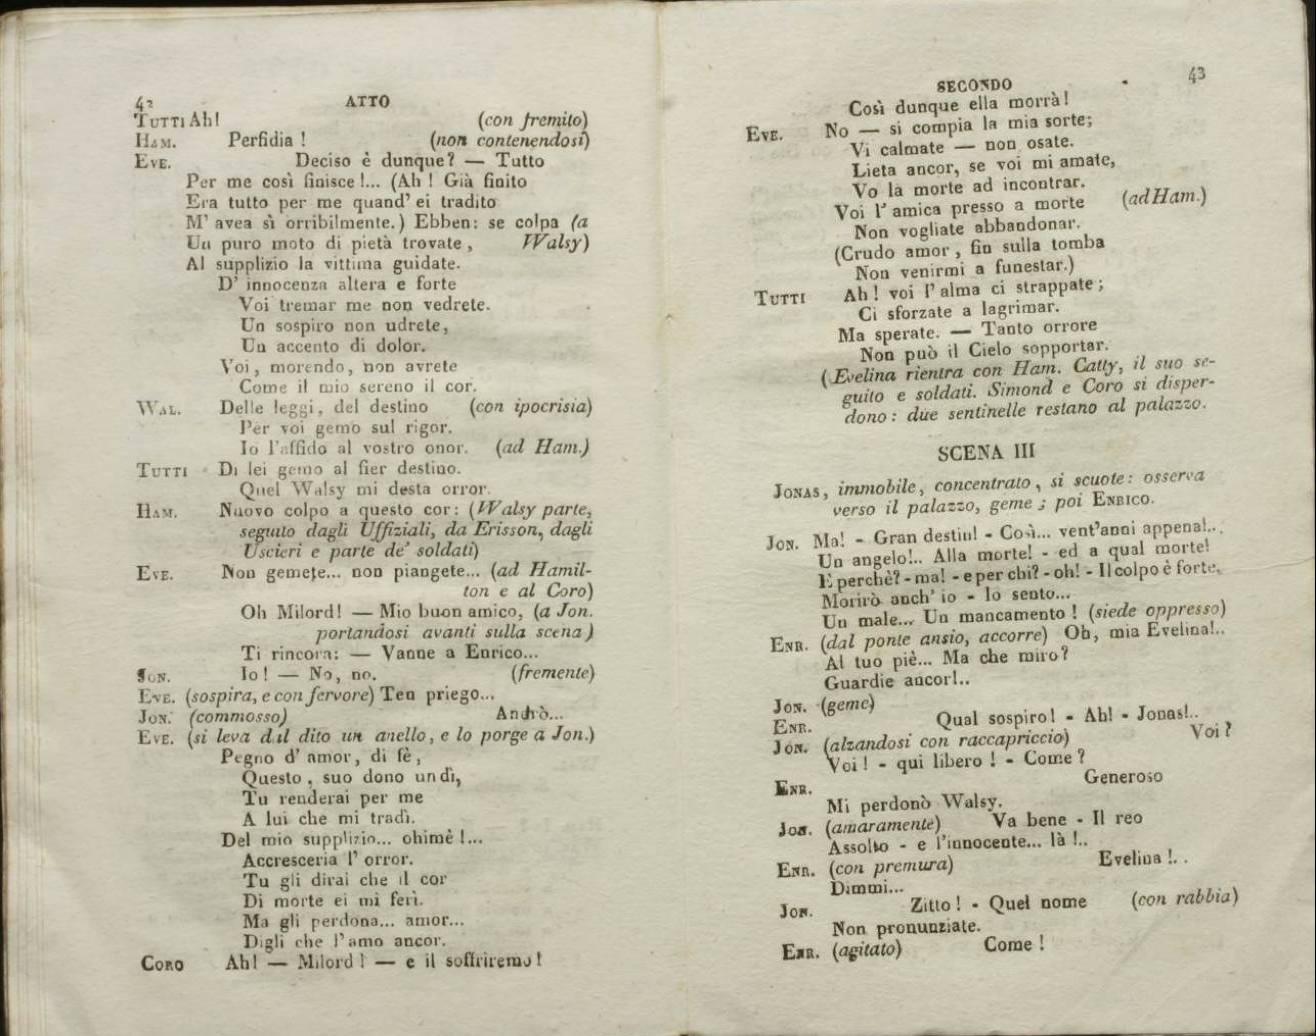 42 ATTO
TUTTI Ah! (con fremito)
HAM. Perfidia ! (non contenendosi)
EVE. Deciso è dunque? — Tutto
Per me così finisce!... (Ah! Già finito
Era tutto per me quand' ei tradito
M' avea sì orribilmente.) Ebben: se colpa (a
Un puro moto di pietà trovate, Walsy)
Al supplizio la vittima guidate.
D' innocenza altera e forte
Voi tremar me non vedrete.
Un sospiro non udrete,
Un accento di dolor.
Voi, morendo, non avrete
Come il mio sereno il cor.
WAL. Delle leggi, del destino (con ipocrisia)
Per voi gemo sul rigor.
Io l'affido al vostro onor. (ad Ham.)
TUTTI Di lei gemo al fier destino.
Quel Walsy mi desta orror.
HAM. Nuovo colpo a questo cor: (Walsy parte,
seguito dagli Uffiziali, da Erisson, dagli
Uscieri e parte de' soldati)
EVE. Non gemete... non piangete... (ad Hamil-
ton e al Coro)
Oh Milord! — Mio buon amico, (a Jon.
portandosi avanti sulla scena)
Ti rincora: — Vanne a Enrico...
JON. Io! — No, no. (fremente)
EVE. (sospira, e con fervore) Ten priego...
JON. (commosso) Andrò...
EVE. (si leva dal dito un anello, e lo porge a Jon.)
Pegno d' amor, di fè,
Questo, suo dono un dì,
Tu renderai per me
A lui che mi tradì.
Del mio supplizio... ohimè!...
Accresceria l' orror.
Tu gli dirai che il cor
Di morte ei mi ferì.
Ma gli perdona... amor...
Digli che l'amo ancor.
CORO Ah! — Milord! — e il soffriremo!
SECONDO 43
Così dunque ella morrà!
EVE. No — si compia la mia sorte;
Vi calmate — non osate.
Lieta ancor, se voi mi amate,
Vo la morte ad incontrar.
Voi l' amica presso a morte (ad Ham.)
Non vogliate abbandonar.
(Crudo amor, fin sulla tomba
Non venirmi a funestar.)
TUTTI Ah! voi l' alma ci strappate;
Ci sforzate a lagrimar.
Ma sperate. — Tanto orrore
Non può il Cielo sopportar.
(Evelina rientra con Ham. Catty, il suo se-
guito e soldati. Simond e Coro si disper-
dono: due sentinelle restano al palazzo.
SCENA III
JONAS, immobile, concentrato, si scuote: osserva
verso il palazzo, geme; poi ENRICO.
JON. Ma! - Gran destin! - Così... vent'anni appena!...
Un angelo!.. Alla morte! - ed a qual morte!
E perchè? - ma! - e per chi? - oh! - Il colpo è forte.
Morirò anch' io - Io sento...
Un male... Un mancamento! (siede oppresso)
ENR. (dal ponte ansio, accorre) Oh, mia Evelina!..
Al tuo piè... Ma che miro?
Guardie ancor!..
JON. (geme)
ENR. Qual sospiro! - Ah! - Jonas!..
JON. (alzandosi con raccapriccio) Voi?
Voi! - qui libero! - Come?
ENR. Generoso
Mi perdonò Walsy.
JON. (amaramente) Va bene - Il reo
Assolto - e l'innocente... là!..
ENR. (con premura) Evelina!..
Dimmi...
JON. Zitto! - Quel nome (con rabbia)
Non pronunziate.
ENR. (agitato) Come!